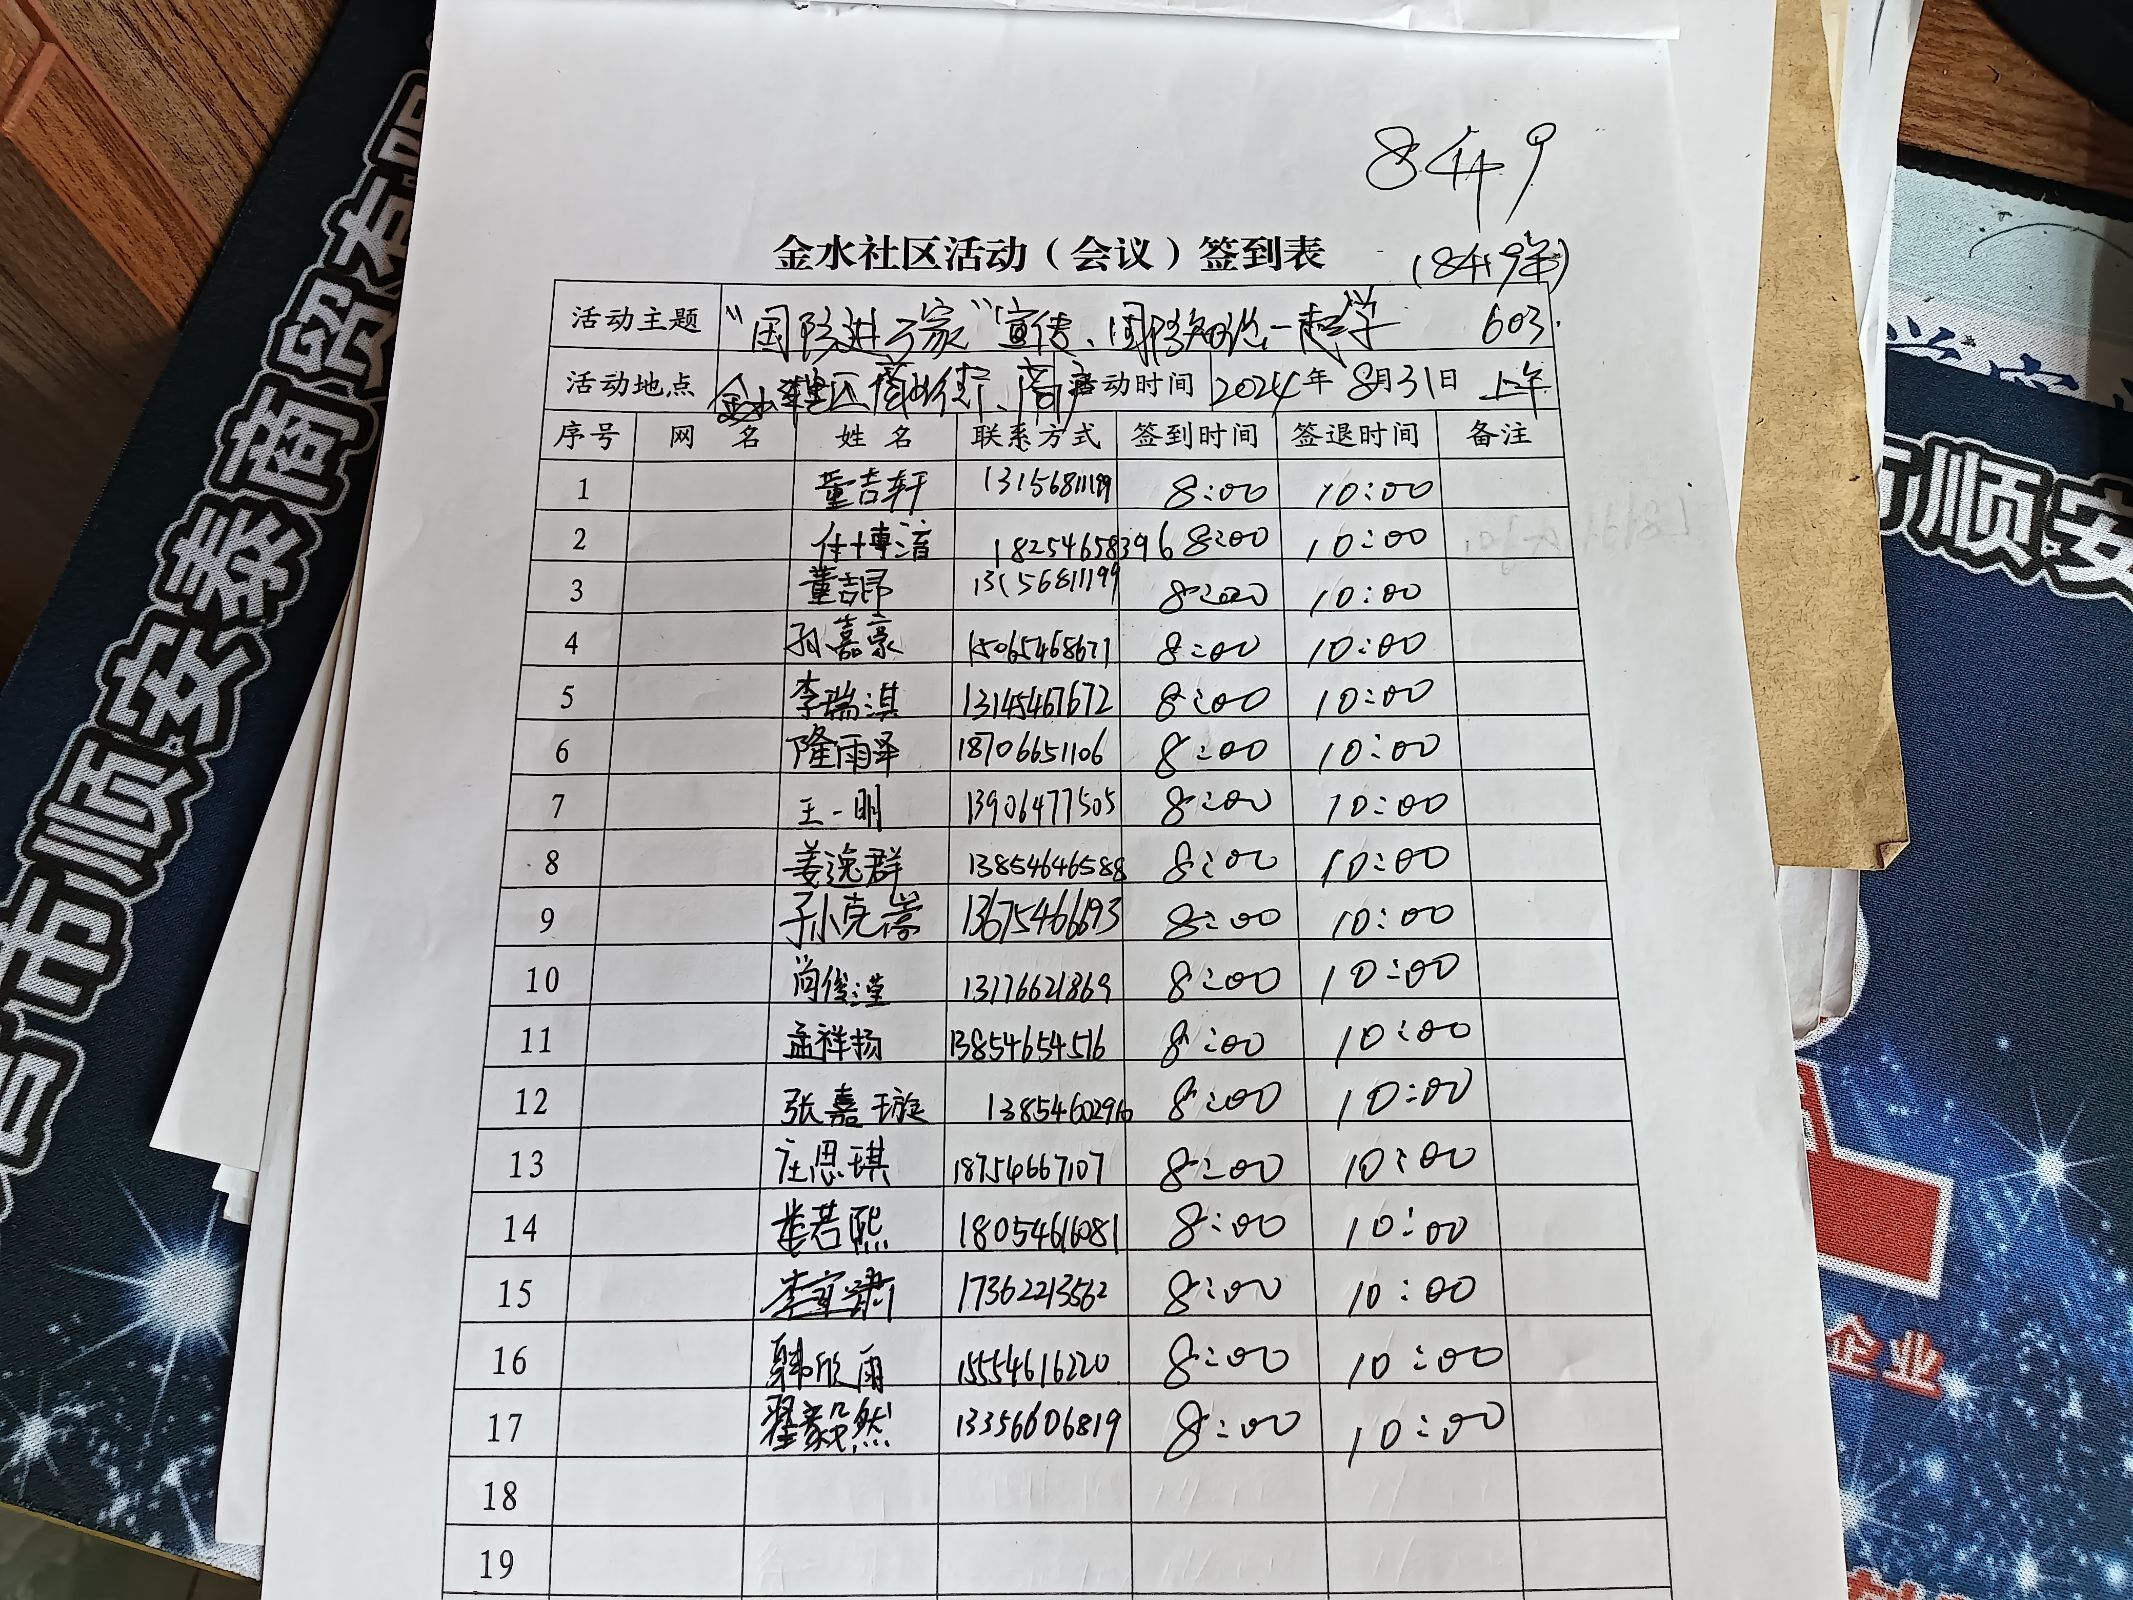 8449
金水社区活动（会议）签到表
(8419年)
活动主题 "国防进万家"宣传、国防知识一起学 603
活动地点 金水社区商业街、商户 活动时间 2024年8月31日 上午
序号 网 名 姓 名 联系方式 签到时间 签退时间 备注
1 董吉轩 13156811199 8:00 10:00
2 任博滀 18254658396 8:00 10:00
3 董吉昂 13156811199 8:00 10:00
4 孙嘉豪 15065468671 8:00 10:00
5 李瑞淇 13145467672 8:00 10:00
6 隆雨泽 18706651106 8:00 10:00
7 王一明 13906477505 8:00 10:00
8 姜逸群 13854646588 8:00 10:00
9 孙克蒙 13675466693 8:00 10:00
10 尚俊滢 13176621869 8:00 10:00
11 孟祥扬 13854654516 8:00 10:00
12 张嘉璇 13854602910 8:00 10:00
13 庄思琪 18754667107 8:00 10:00
14 娄若熙 18054616081 8:00 10:00
15 17362213562 8:00 10:00
16 韩欣雨 15554616220 8:00 10:00
17 翟毅然 13356606819 8:00 10:00
18
19
市顺安泰商贸有限
市顺安
企业